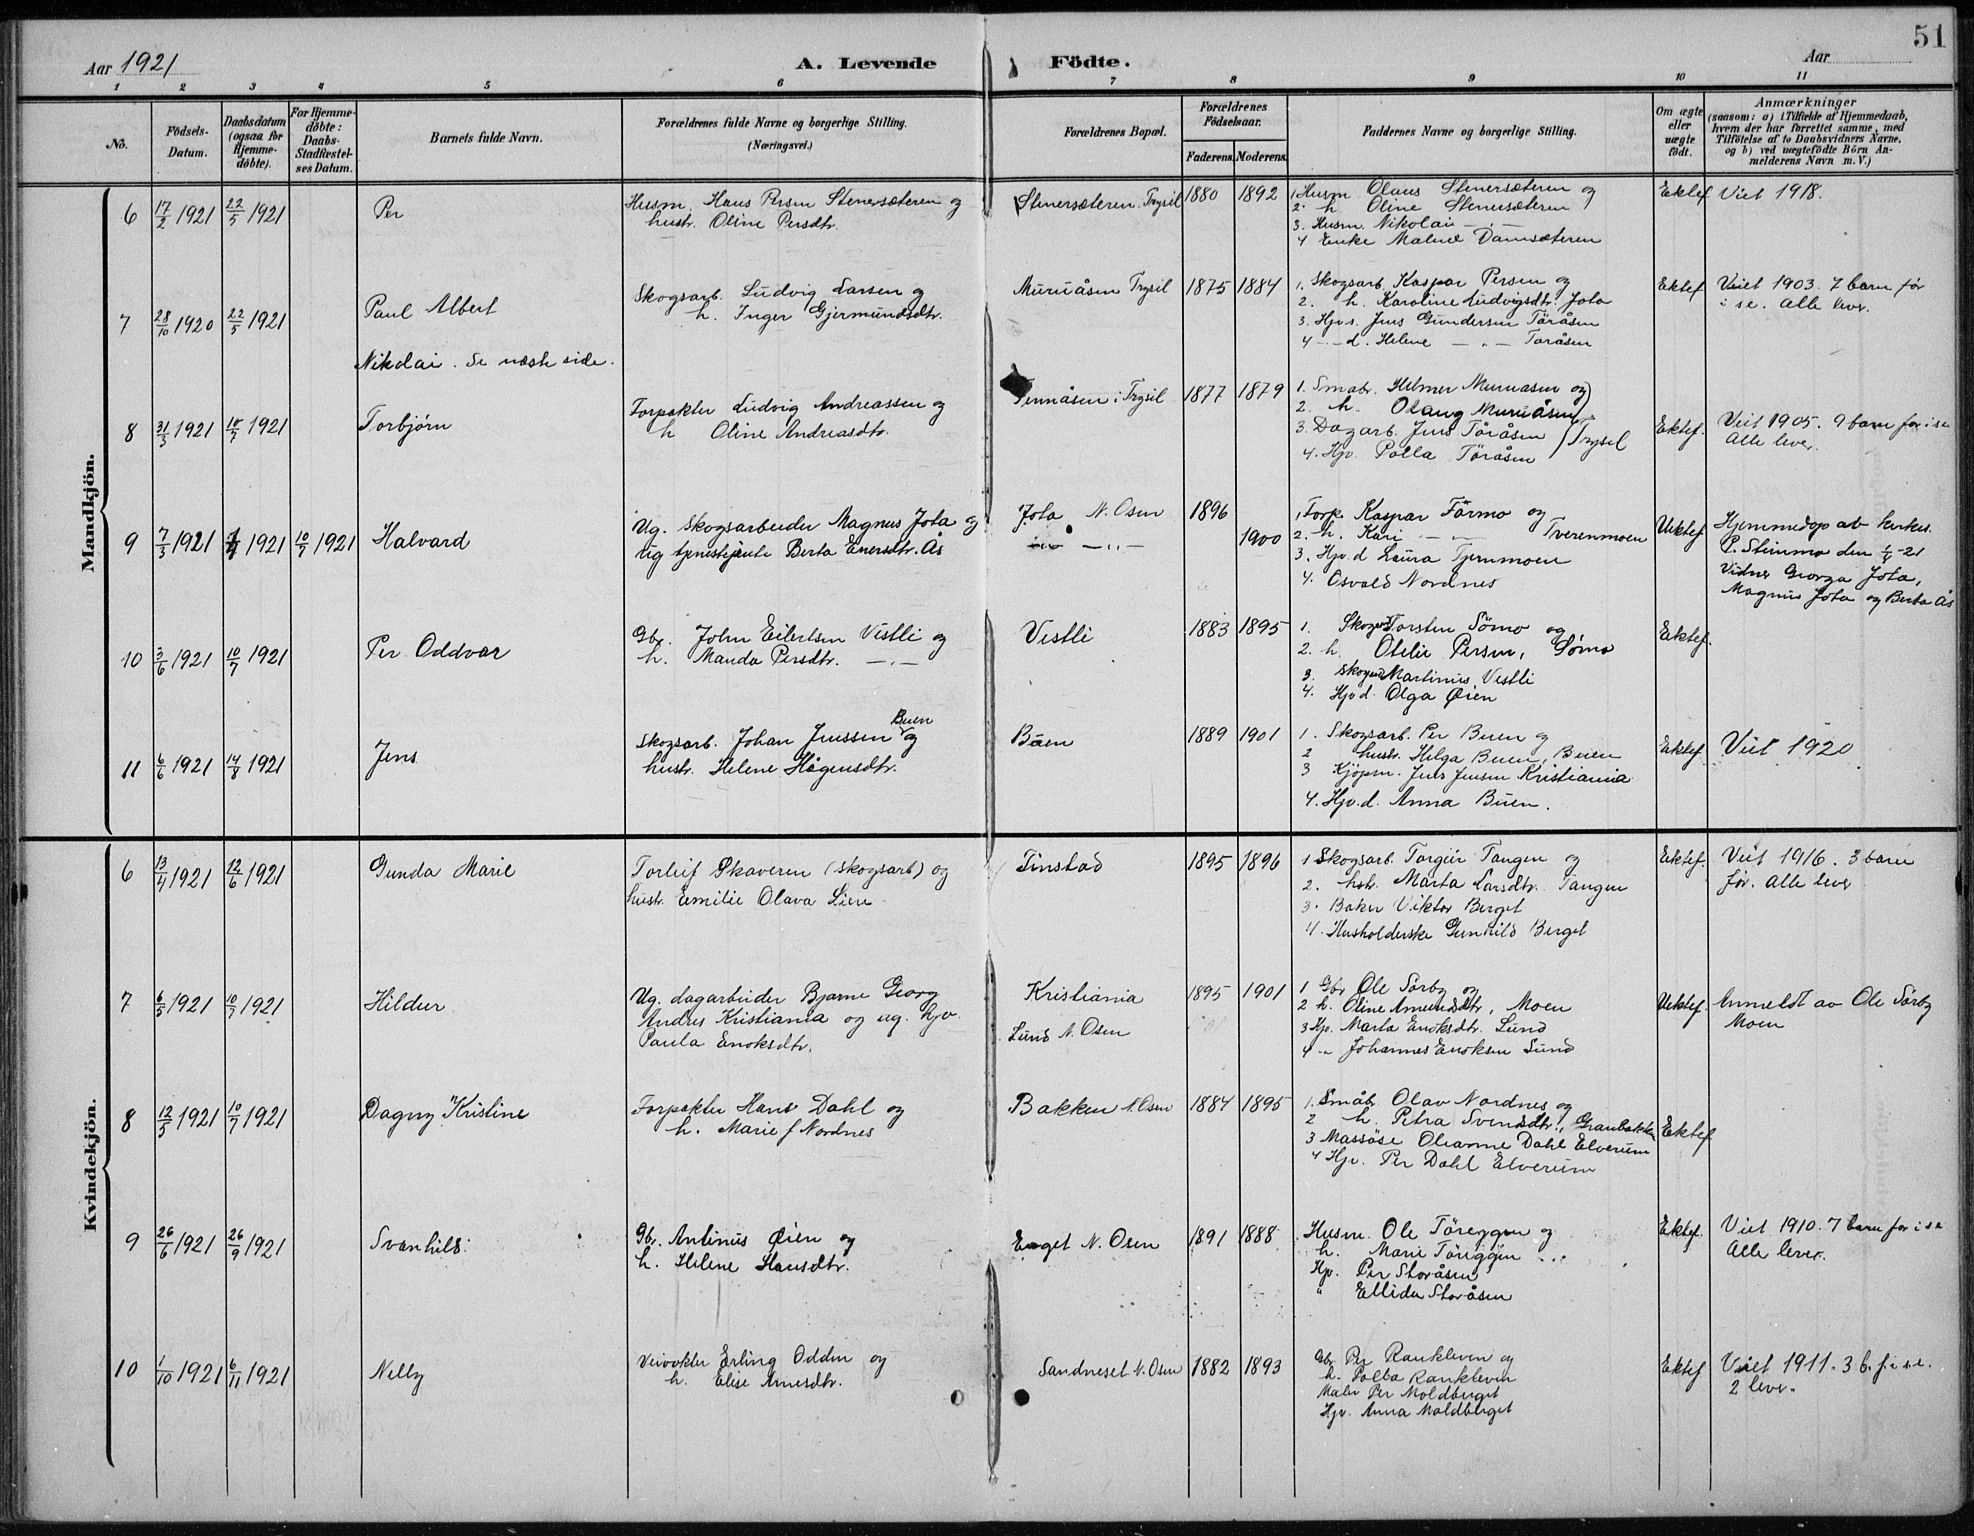 51
Aar 1921
A. Levende
Födte.
Aar
1 2 3 4 5 6 7 8 9 10 11
No.
Födsels-Datum.
Daabsdatum (ogsaa for Hjemme-döbte).
For Hjemme-döbte: Daabs-Stadfæstel-ses Datum.
Barnets fulde Navn.
Forældrenes fulde Navne og borgerlige Stilling.
(Næringsvei.)
Forældrenes Bopæl.
Forældrenes Födselsaar.
Faderens. Moderens.
Faddernes Navne og borgerlige Stilling.
Om ægte eller uægte födt.
Anmærkninger
(saasom: a) i Tilfælde af Hjemmedaab, hvem der har forrettet samme, med Tilföielse af to Daabsvidners Navne, og b) ved uægtefödte Börn An-melderens Navn m. V.)
Mandkjön.
6 17/2 1921 22/5 1921 Per
Husm. Hans Persen Stenersæteren og
hustr. Oline Persdtr.
Stenersæteren Trysil 1880 1892
1 Husm Olaus Stenersæteren og
2. h Oline Stenersæteren
3. Husm. Nikolai — " —
4 Enke Malene Damsæteren
Ektef. Viet 1918.
7 28/10 1920 22/5 1921 Paul Albert
Skogsarb. Ludvig Larsen og
h. Inger Gjermundsdtr.
Muruåsen Trysil 1875 1884
1. Skogsarb. Kaspar Persen og
2. h. Karoline Ludvigsdtr. Jota
3. Hjv.s. Jens Gundersen Töråsen
4 — " — d. Helene — " — Töråsen
Ektef Viet 1903. 7 barn før
i se. Alle lever.
Nikolai. Se næste side.
8 31/3 1921 10/7 1921 Torbjørn
Forpakter Ludvig Andreassen og
h Oline Andreasdtr.
Tennåsen i Trysil 1877 1879
1. Småbr. Helmer Muruåsen og
2. h. Olaug Muruåsen
3. Dagarb. Jens Töråsen
4. Hjv. Polla Töråsen
Trysil
Ektef. Viet 1905. 9 barn før i se
Alle lever.
9 7/3 1921 1/4 1921 10/7 1921 Halvard
Ug. Skogsarbeider Magnus Jota og
Ug tjenestejente Berta Enersdtr. Ås
Jota N. Osen 1896
— " — — " — 1900
1. Forp. Kaspar Törmo og
2. h. Kari — " — Tverenmoen
3. Hjv.d Laura Tjernmoen
4. Osvald Nordnes
Uektef Hjemmedøpt av kirkes.
P. Stenmo den 1/4-21
Vidner Georga Jota,
Magnus Jota og Berta Ås
10 3/6 1921 10/7 1921 Per Oddvar
Gbr. John Eilertsen Vestli og
h. Manda Persdtr. — " —
Vestli 1883 1895
1. Skogsarb Torsten Sömo og
2. h Otelie Persen, Sömo
3. Skogsarb Martinius Vestli
4. Hjv d. Olga Øien
Ektef.
11 6/6 1921 14/8 1921 Jens
Skogsarb. Johan Jenssen Buen og
hustr. Helene Hågensdtr.
Buen 1889 1901
1. Skogsarb. Per Buen og
2 hustr. Helga Buen, Buen
3 Kjöpm. Jens Jensen Kristiania
4. Hjv.d. Anna Buen.
Ektef. Viet 1920
Kvindekjön.
6 13/4 1921 12/6 1921 Gunda Marie
Torleif Skaveren (skogsarb) og
hustr. Emilie Olava Lien
Finstad 1895 1896
1 Skogsarb. Torgeir Tangen og
2. hstr. Marta Larsdtr. Tangen
3. Baker Viktor Berget
4. Husholderske Gunhild Berget
Ektef. Viet 1916. 3 barn
før. Alle lever
7 6/5 1921 10/7 1921 Hildur
Ug. dagarbeider Bjarne Georg
Andres Kristiania og ug. hjv.
Paula Enoksdtr.
Kristiania 1895 1901
Lund N. Osen
1 Gbr Ole Sörby og
2 h. Oline Amundsdtr, Moen
3 Hjv. Marta Enoksdtr. Lund
4 " Johannes Enoksen Lund
Uektef. Anmeldt av Ole Sörby
Moen
8 12/5 1921 10/7 1921 Dagny Kristine
Forpakter Hans Dahl og
h. Marie f Nordnes
Bakken N. Osen 1884 1895
1. Småbr Olav Nordnes og
2 h. Petra Svendsdtr., Granbakken
3 Massöse Oleanne Dahl Elverum
4 Hjv. Per Dahl Elverum
Ektef.
9 26/6 1921 26/9 1921 Svanhild
Gbr. Antinus Øien og
h. Helene Hansdtr.
Enget N. Osen 1891 1888
Husm. Ole Töreggen og
h. Marie Töreggen
Hjv. Per Storåsen
" Ellida Storåsen
Ektef. Viet 1910. 7 barn før i se
Alle lever.
10 1/10 1921 6/11 1921 Nelly
Veivokter Erling Odden og
h. Elise Arnesdtr.
Sandneset N. Osen 1882 1893
Gbr Per Rankleven og
h. Polla Rankleven
Maler Per Moldberget
Hjv. Anna Moldberget
Ektef Viet 1911. 3 b. f. i s.e.
2 lever.